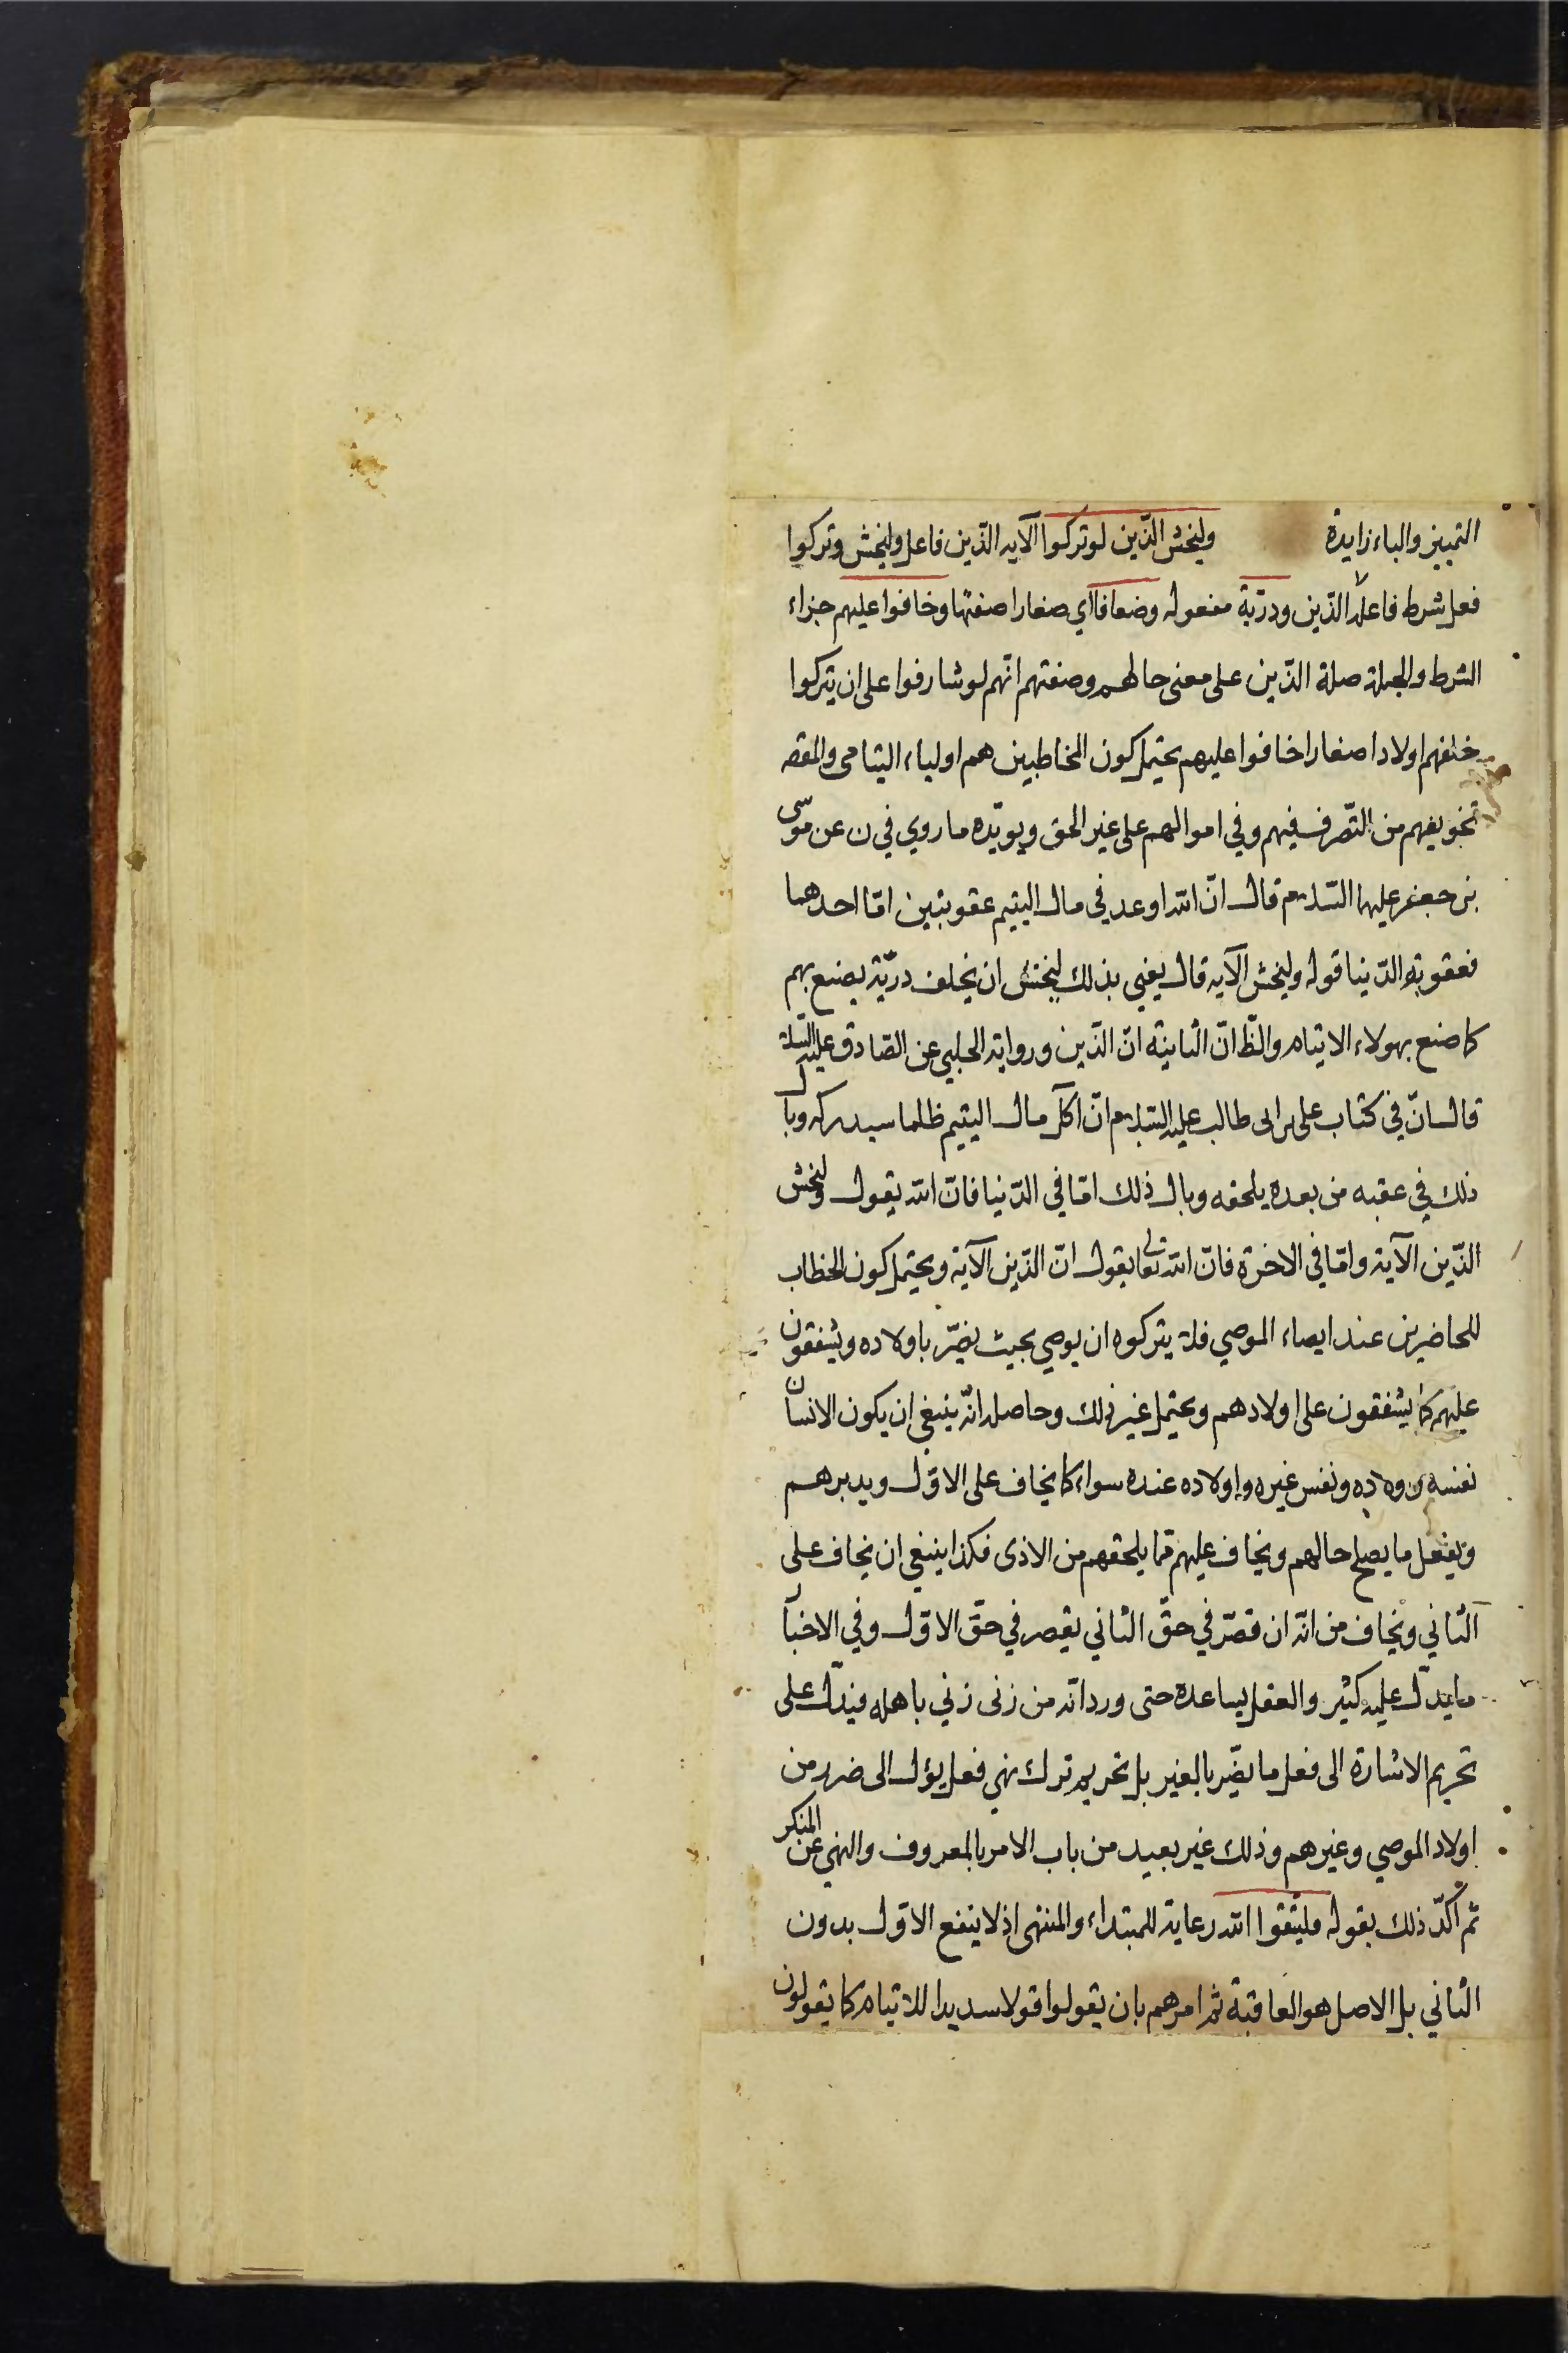 التمييز والباء زايدة وليخش الذين لو تركوا الآيه الذين فاعل وليخش وتركوا
فعل شرط فاعله الذين وذريّة مفعوله وضعافا اي صغارا صفتها وخافوا عليهم جزاء
الشرط والجملة صلة الذين على معنى حالهم وصفتهم انّهم لو شارفوا على ان يتركوا
خلفهم اولادا صغارا خافوا عليهم يحتمل كون المخاطبين هم اولياء اليتامى والمقصـ
تخويفهم من التصرف فيهم وفي اموالهم على غير الحق ويويّده ما روي في ن عن موسى
بن جعفر عليهما السّلام قال انّ الله اوعد في مال اليتيم عقوبتين امّا احدهما
فعقوبة الدّنيا قوله وليخش الآيه قال يعني بذلك ليخش ان يخلف ذرّيّة يصنع بهم
كما صنع بهولاء الايتام والظ انّ الثانية انّ الذين ورواية الحلبي عن الصّادق عليه السّلام
قال انّ في كتاب على بن ابى طالب عليه السّلام انّ اكل مال اليتيم ظلما سيدركه وبال
ذلك في عقبه من بعده يلحقه وبال ذلك امّا في الدّنيا فانّ الله يقول وليخش
الذّين الآية وامّا في الاخرة فانّ الله تعالى يقول انّ الذين الآية ويحتمل كون الخطاب
للحاضرين عند ايصاء الموصي فلا يتركوه ان يوصي بحيث يضرّ باولاده ويشفقون
عليهم كما يشفقون على اولادهم ويحتمل غير ذلك وحاصله انّه ينبغي ان يكون الانسان
نفسه واولاده ونفس غيره واولاده عنده سواء كما يخاف على الاوّل ويدبرهم
ويفعل ما يصلح حالهم ويخاف عليهم ممّا يلحقهم من الاذى فكذا ينبغي ان يخاف على
الثاني ويخاف من انّه ان قصّر في حقّ الثاني يقصر في حقّ الاوّل وفي الاخبار
ما يدلّ عليه كثير والعقل يساعده حتى ورد انّه من زنى زني باهله فيدلّ على
تحريم الاشارة الى فعل ما يضّر بالغير بل تحريم ترك نهي فعل يؤل الى ضرر من
اولاد الموصي وغيرهم وذلك غير بعيد من باب الامر بالمعروف والنهي عن المنكر
ثم اكّد ذلك بقوله فليتقوا الله رعاية للمبتداء والمنتهى اذ لا ينفع الاوّل بدون
الثاني بل الاصل هو العاقبة ثم امرهم بان يقولوا قولا سديدا للايتام كما يقولون